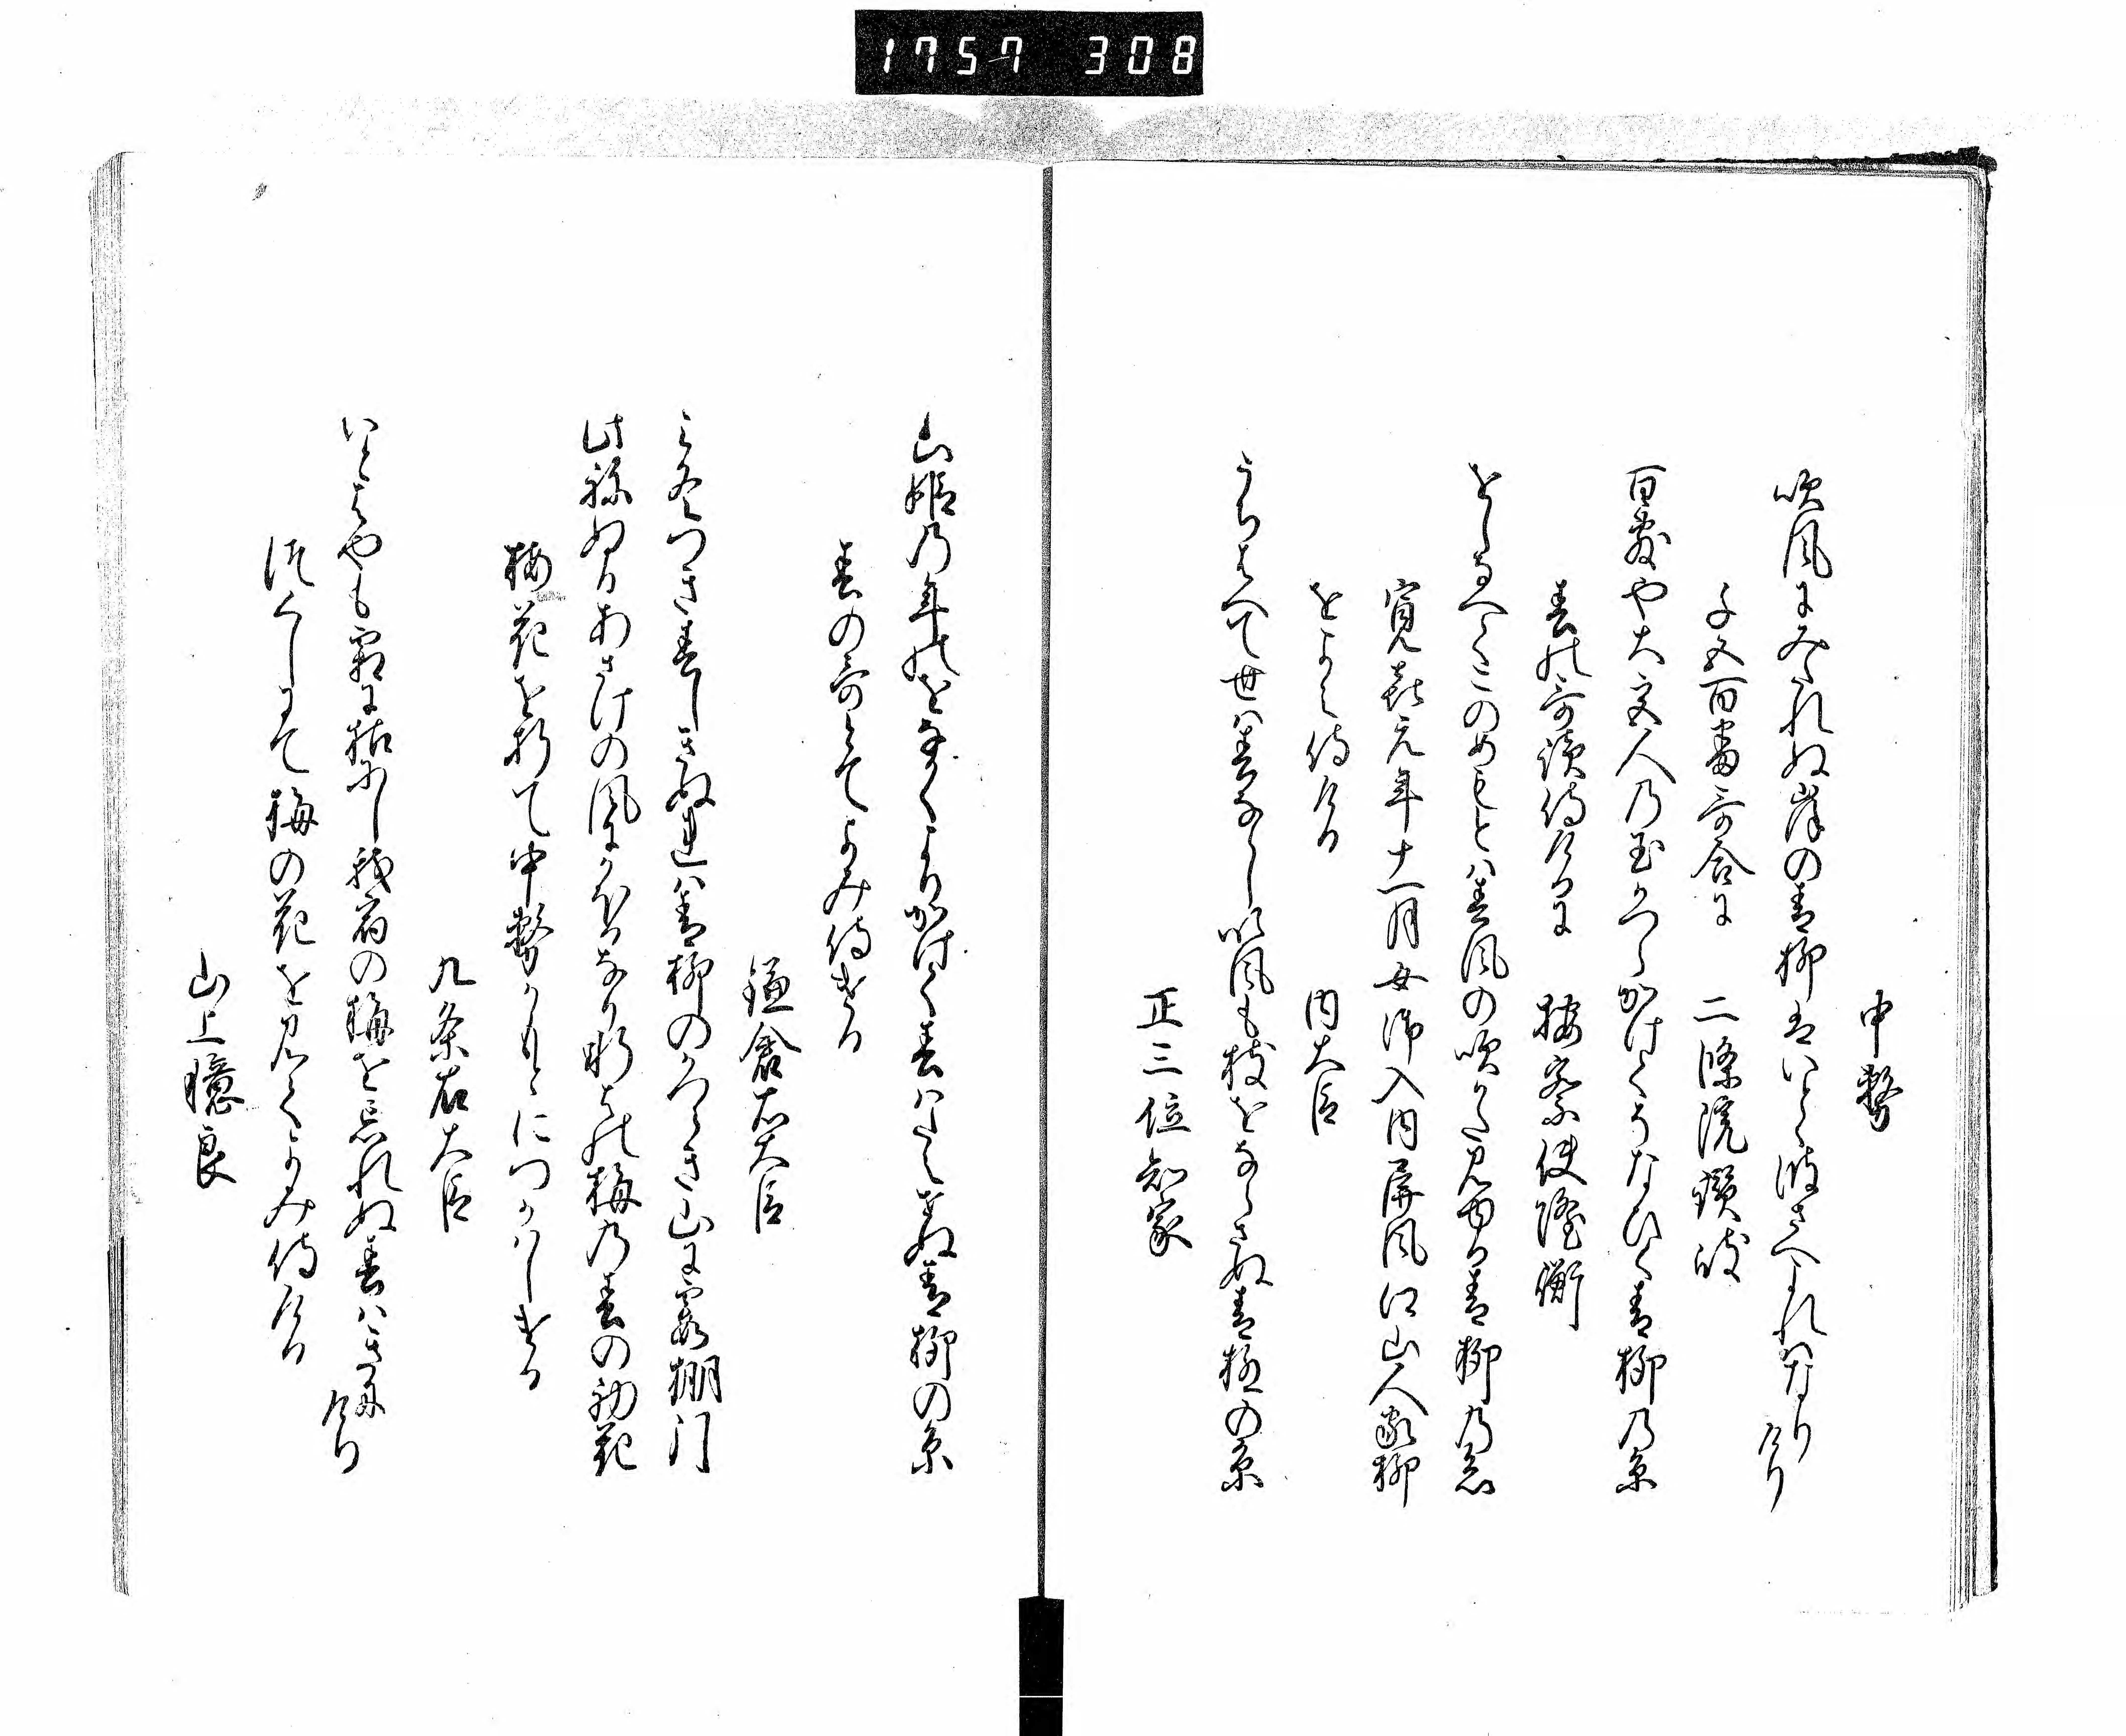 1757 308
中務
吹風にみたれぬ岸の青柳はいとゝ波さへよれはなりけり
千五百番哥合に 二條院讃岐
百敷や大宮人の玉かつらかけてそなひく青柳の糸
春の哥讀侍けるに 按察使隆衡
をしなへてこのめも今は春風の吹かた見ゆる青柳の糸
寛喜元年十一月女御入内屏風江山人家柳
をよみ侍ける 内大臣
うちはへて世は春ならし吹風も枝をならさぬ青柳の糸
正三位知家
山姫の年のをなかくよりかけて春はたえせぬ青柳の糸
春の哥とてよみ侍ける
鎌倉右大臣
み冬つき春しきぬれは青柳のかつらき山に霞棚引
此ねぬるあさけの風にかほるなり軒はの梅の春の初花
梅花を折て中務かもとにつかはしける
九条右大臣
いとはやも霜に枯にし我宿の梅を忘れぬ春はきにけり
つくしにて梅の花を見てよみ侍ける
山上憶良